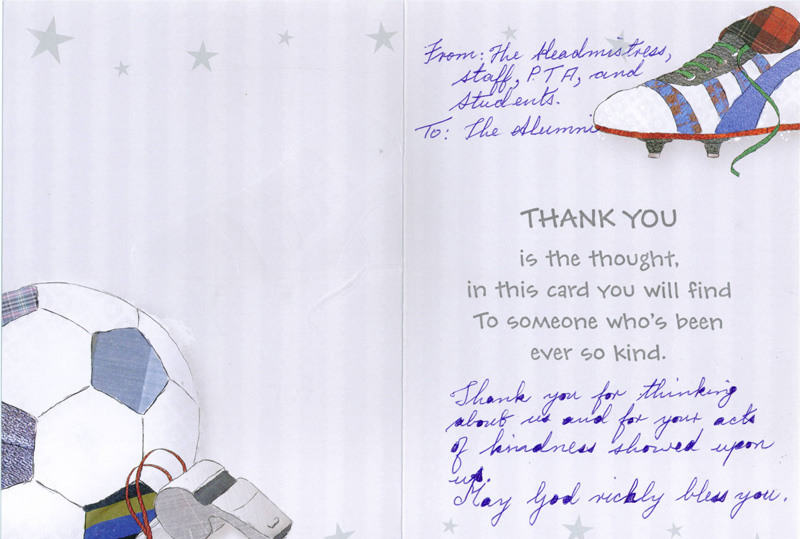 From: The Headmistress,
staff, P.T.A, and
students.
To: The Alumni
THANK YOU
is the thought,
in this card you will find
To someone who's been
ever so kind.
Thank you for thinking
about us and for your acts
of kindness showed upon
us.
May God richly bless you.